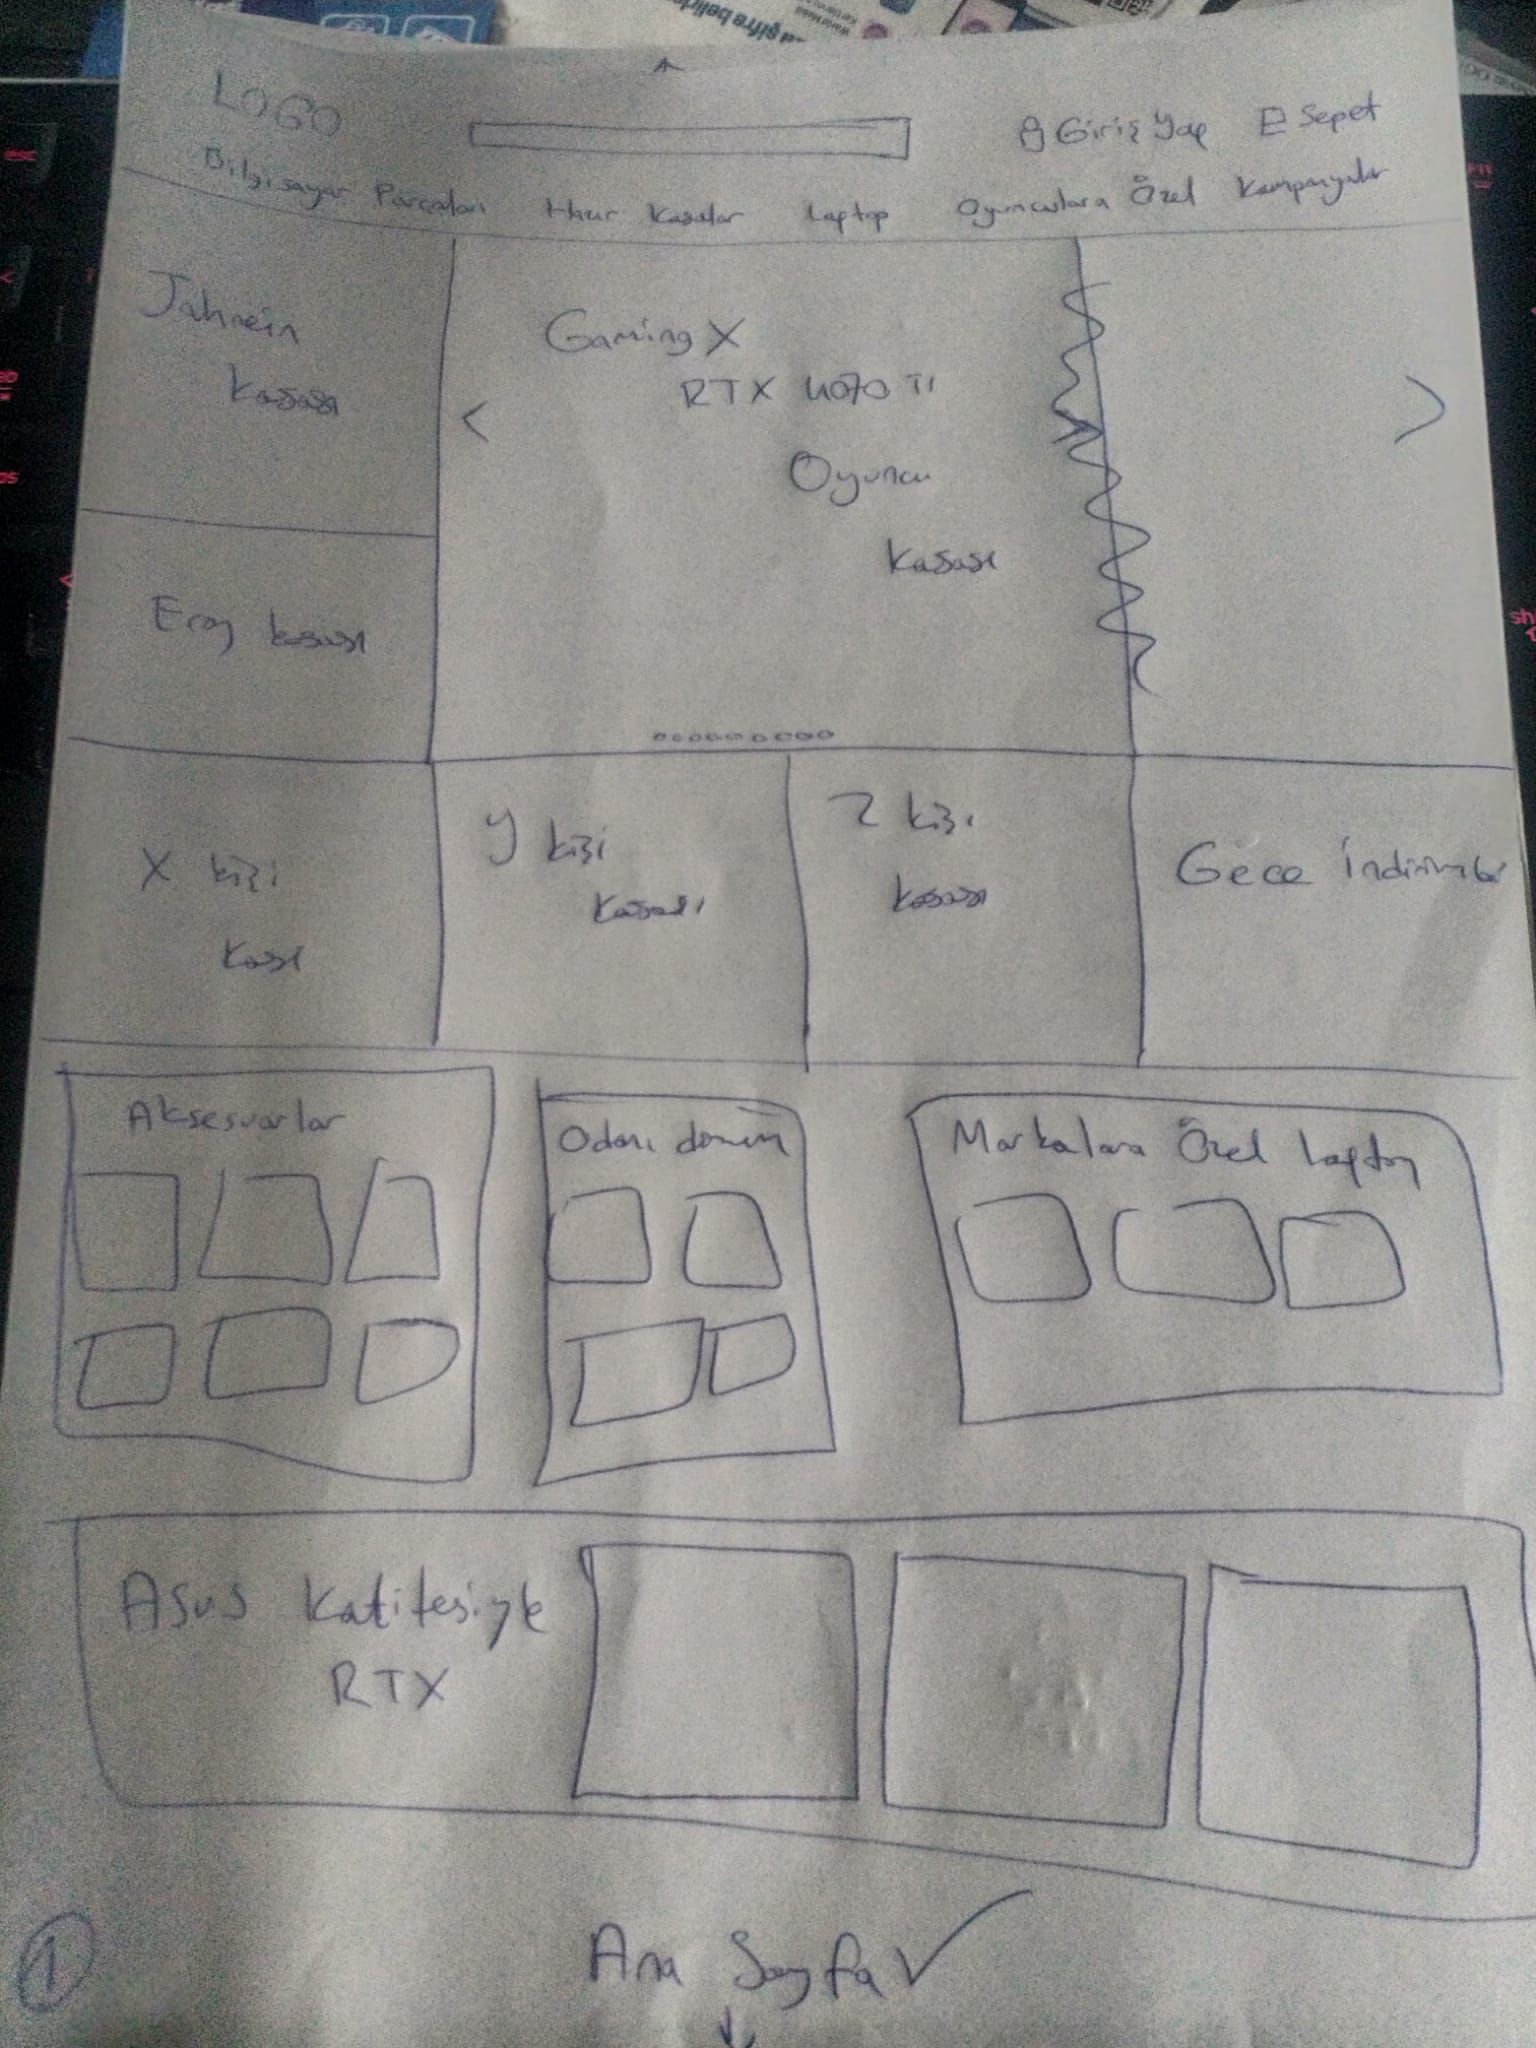 LOGO
Giriş Yap
Sepet
Bilgisayar Parçaları
Hazır Kasalar
Laptop
Oyunculara Özel
Kampanyalar
Jahrein
kasası
<
Gaming X
RTX 4070 TI
Oyuncu
kasası
>
Eray kasası
X kişi
Kası
Y kişi
Kasası
Z kişi
kasası
Gece İndirimleri
Aksesuarlar
Odanı donan
Markalara Özel Laptop
Asus Kalitesiyle
RTX
1
Ana Sayfa